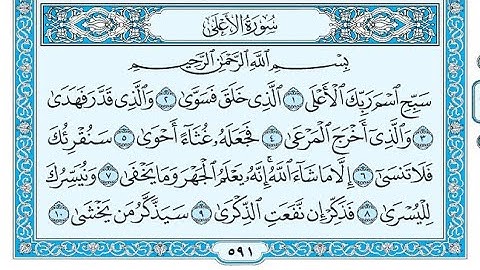 سُورَةُ الأَعْلَى
بِسْمِ اللَّهِ الرَّحْمَٰنِ الرَّحِيمِ
سَبِّحِ اسْمَ رَبِّكَ الْأَعْلَى ١ الَّذِي خَلَقَ فَسَوَّىٰ ٢ وَالَّذِي قَدَّرَ فَهَدَىٰ
٣ وَالَّذِي أَخْرَجَ الْمَرْعَىٰ ٤ فَجَعَلَهُ غُثَاءً أَحْوَىٰ ٥ سَنُقْرِئُكَ
فَلَا تَنسَىٰ ٦ إِلَّا مَا شَاءَ اللَّهُ ۚ إِنَّهُ يَعْلَمُ الْجَهْرَ وَمَا يَخْفَىٰ ٧ وَنُيَسِّرُكَ
لِلْيُسْرَىٰ ٨ فَذَكِّرْ إِن نَّفَعَتِ الذِّكْرَىٰ ٩ سَيَذَّكَّرُ مَن يَخْشَىٰ ١٠
٥٩١